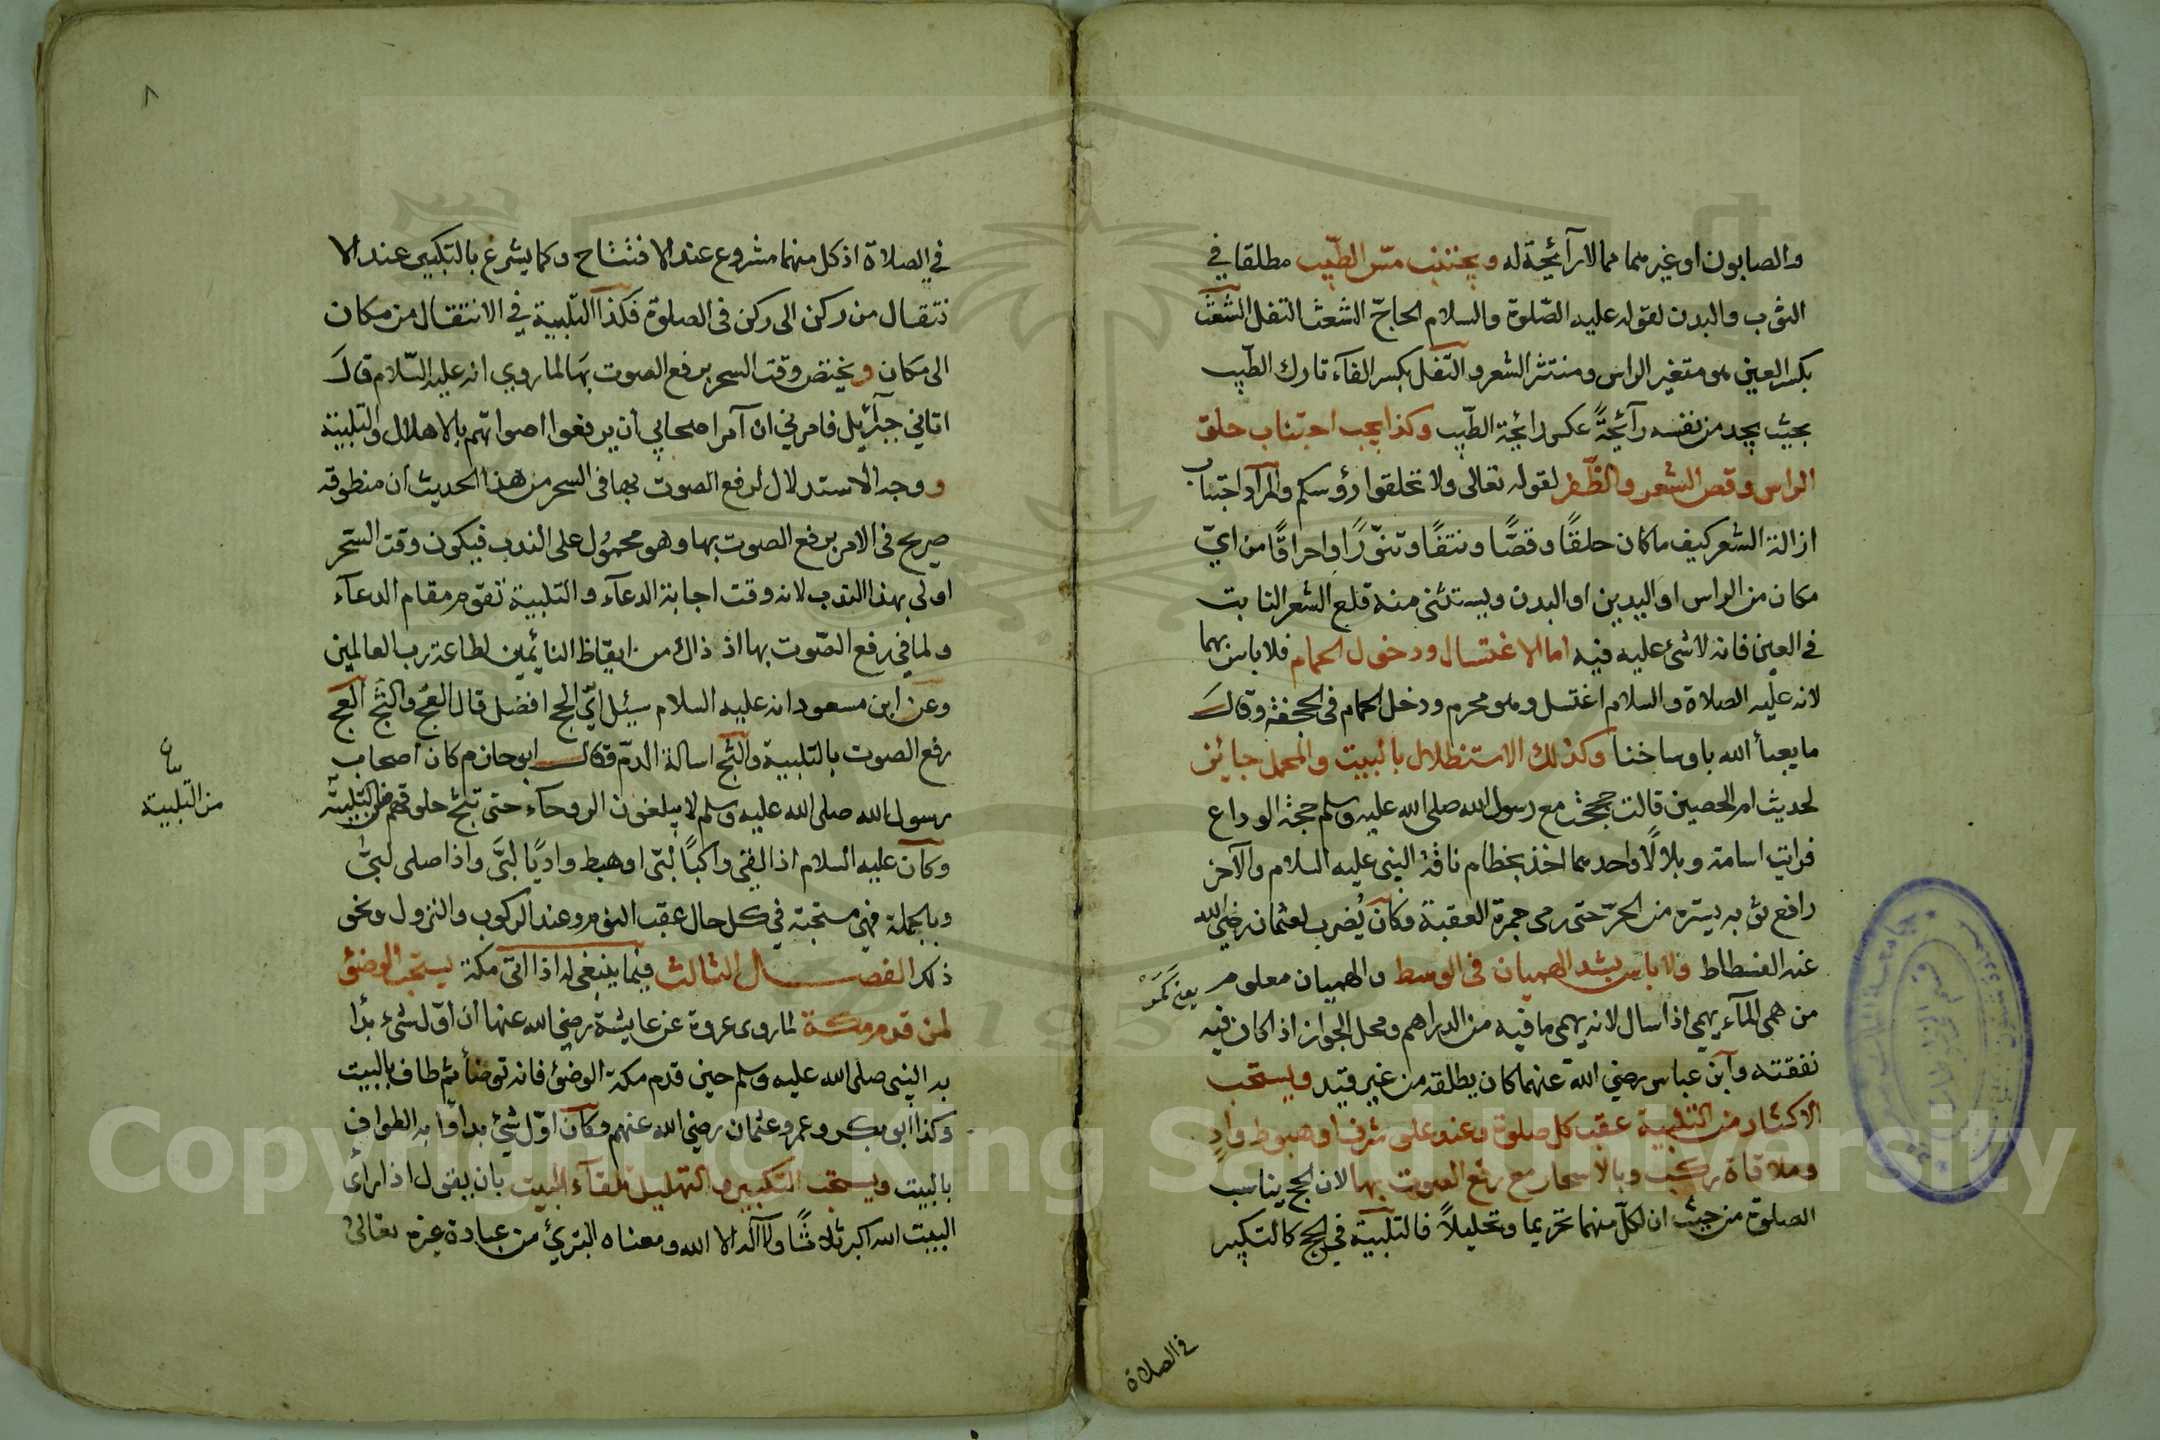 والصابون او غيرهما مما لا رآئحة له ويجتنب مسّ الطّيب مطلقا في
الثوب والبدن لقوله عليه الصّلوة والسلام الحاجّ الشعث التفل الشّعث
بكسر العين هو متغير الراس ومنتثر الشعر والتّفل بكسر الفآء تارك الطّيب
بحيث يجد من نفسه رآئحةً عكس رائحة الطّيب وكذا يجب اجتناب حلق
الراس وقص الشعر والظّفر لقوله تعالى ولا تحلقوا رؤسكم والمرآد اجتناب
ازالة الشعر كيف ما كان حلقًا وقصًّا ونتفًا وتنوّرًا واحراقًا من ايّ
مكان من الراس او اليدين او البدن ويستثنى منه قلع الشعر النابت
في العين فانه لا شئ عليه فيه اما الاغتسال ودخول الحمام فلا باس بهما
لانه عليه الصلاة والسلام اغتسل وهو محرم ودخل الحمام في الجحفة وقال
ما يعبأ الله باوساخنا وكذلك الاستظلال بالبيت والمحمل جايز
لحديث ام الحصين قالت حججت مع رسول الله صلى الله عليه وسلم حجة الوداع
فرايت اسامة وبلالًا واحدهما اخذ بخطام ناقة النبي عليه السلام والآخر
رافع ثوبه يستره من الحرّ حتى رمى جمرة العقبة وكآن يُضرب لعثمان رضي الله
عنه الفسطاط ولا باس بشد الهميان في الوسط والهميان معلوم
من همى المآء يهمي اذا سال لانه يهمى ما فيه من الدراهم ومحل الجواز اذا كان فيه
نفقته وآبن عباس رضي الله عنهما كان يطلقه من غير قيد ويستحب
الاكثار من التلبية عقب كل صلوة وعند على شرف او هبوط وادٍ
وملاقاة ركب وبالاسحار مع رفع الصوت بها لان الحج يناسب
الصلوة من حيث ان لكلّ منهما تحريما وتحليلاً فالتلبية في الحج كالتكبير
في الصلاة
٨
في الصلاة اذ كل منهما مشروع عند الافتتاح وكما يشرع بالتكبير عند الا
نتقال من ركن الى ركن في الصلوة فكذا التلبية في الانتقال من مكان
الى مكان ويختص وقت السحر برفع الصوت بها لما روي انه عليه السّلام قال
اتاني جبرآئيل فامرني ان آمر اصحابي أن يرفعوا اصواتهم بالاهلال والتلبية
ووجه الاستدلال لرفع الصوت بها في السحر من هذا الحديث ان منطوقه
صريح في الامر برفع الصوت بها وهو محمول على الندب فيكون وقت السّحر
اولى بهذا الندب لانه وقت اجابة الدعآء والتلبية تقوم مقام الدعآء
ولما في رفع الصّوت بها اذ ذاك من ايقاظ النايمين لطاعة رب العالمين
وعن ابن مسعود انه عليه السلام سئل ايّ الحج افضل قال العَج والثَج العَج
رفع الصوت بالتلبية والثج اسالة الدّم وقال ابو حازم كان اصحاب
رسول الله صلى الله عليه وسلم لا يبلغون الروحآء حتى تبحّ حلوقهم من التلبية
من التلبية
وكآن عليه السلام اذا لقى راكبًا لبّى او هبط واديًا لبّى واذا صلى لبّى
وبالجملة فهي مستحبة في كل حال عقب النوم وعند الركوب والنزول ونحو
ذلك الفصل الثالث فيما ينبغي له اذا اتى مكة يستحب الوضؤ
لمن قدم مكة لما روى عروة عن عايشة رضي الله عنها ان اوّل شىء بدا
به النبي صلى الله عليه وسلم حين قدم مكة الوضؤ فانه توضأ ثم طاف بالبيت
وكذا ابو بكر وعمر وعثمان رضي الله عنهم وكآن اوّل شئ بداوا به الطواف
بالبيت ويستحب التكبير والتهليل تلقآء البيت بان يقول اذا راى
البيت الله اكبر ثلاثًا ولا اله الا الله ومعناه التبرئ من عبادة غيره تعالى
Copyright © King Saud University